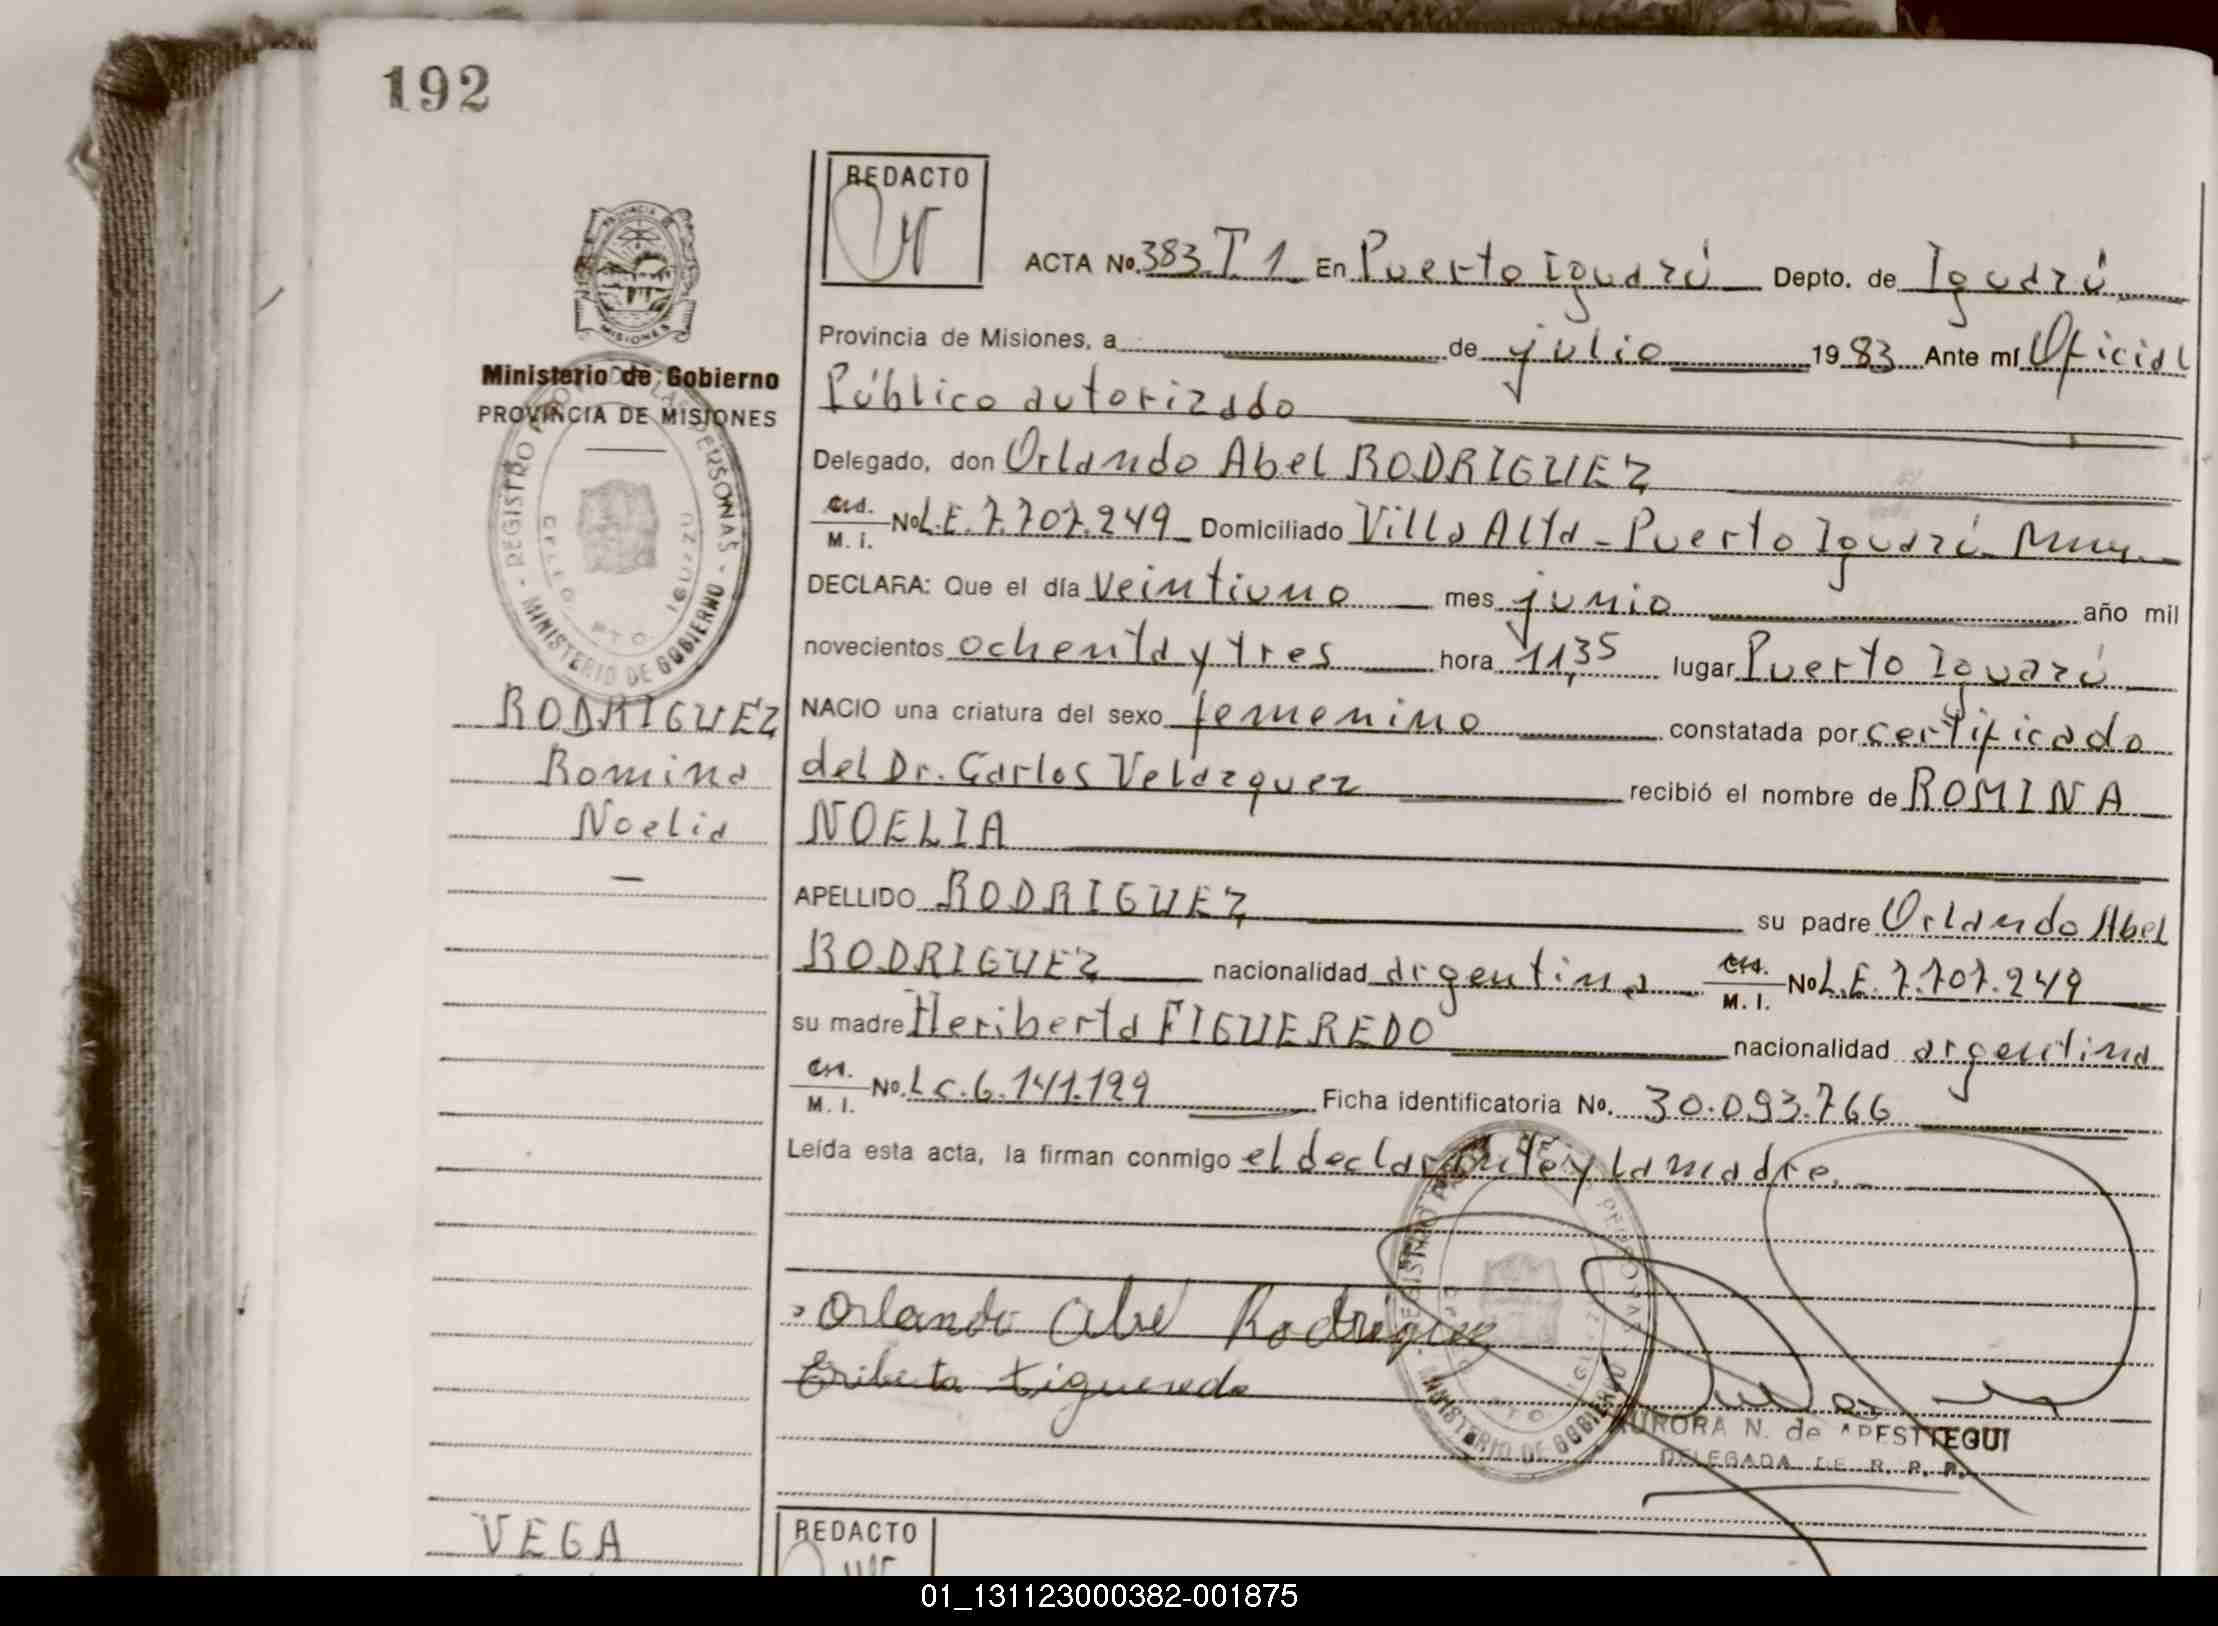 192
REDACTO
ACTA No. 383 T 1 En Puerto Iguazú Depto. de Iguazú
PROVINCIA
MISIONES
Provincia de Misiones, a de julio 1983 Ante mí Oficial
Ministerio de Gobierno
PROVINCIA DE MISIONES
Público autorizado
Delegado, don Orlando Abel RODRIGUEZ
C.I.
M. I. No L.E. 7.707.249 Domiciliado Villa Alta - Puerto Iguazú
DECLARA: Que el día veintiuno mes junio año mil
novecientos ochenta y tres hora 11,35 lugar Puerto Iguazú
REGISTRO PERSONAS
MINISTERIO DE GOBIERNO
PTO. IGUAZU
RODRIGUEZ
Romina
Noelia
—
NACIO una criatura del sexo femenino constatada por certificado
del Dr. Carlos Velazquez recibió el nombre de ROMINA
NOELIA
APELLIDO RODRIGUEZ su padre Orlando Abel
RODRIGUEZ nacionalidad argentina C.I. M. I. No L.E. 7.707.249
su madre Heriberta FIGUEREDO nacionalidad argentina
C.I.
M. I. No. L.C. 6.141.129 Ficha identificatoria No. 30.093.766
Leída esta acta, la firman conmigo el declarante y la madre.-
Orlando Abel Rodriguez
Eriberta Figueredo
MINISTERIO DE GOBIERNO
AURORA N. de APESTEGUI
DELEGADA DE R. P. P.
VEGA
REDACTO
01_131123000382-001875